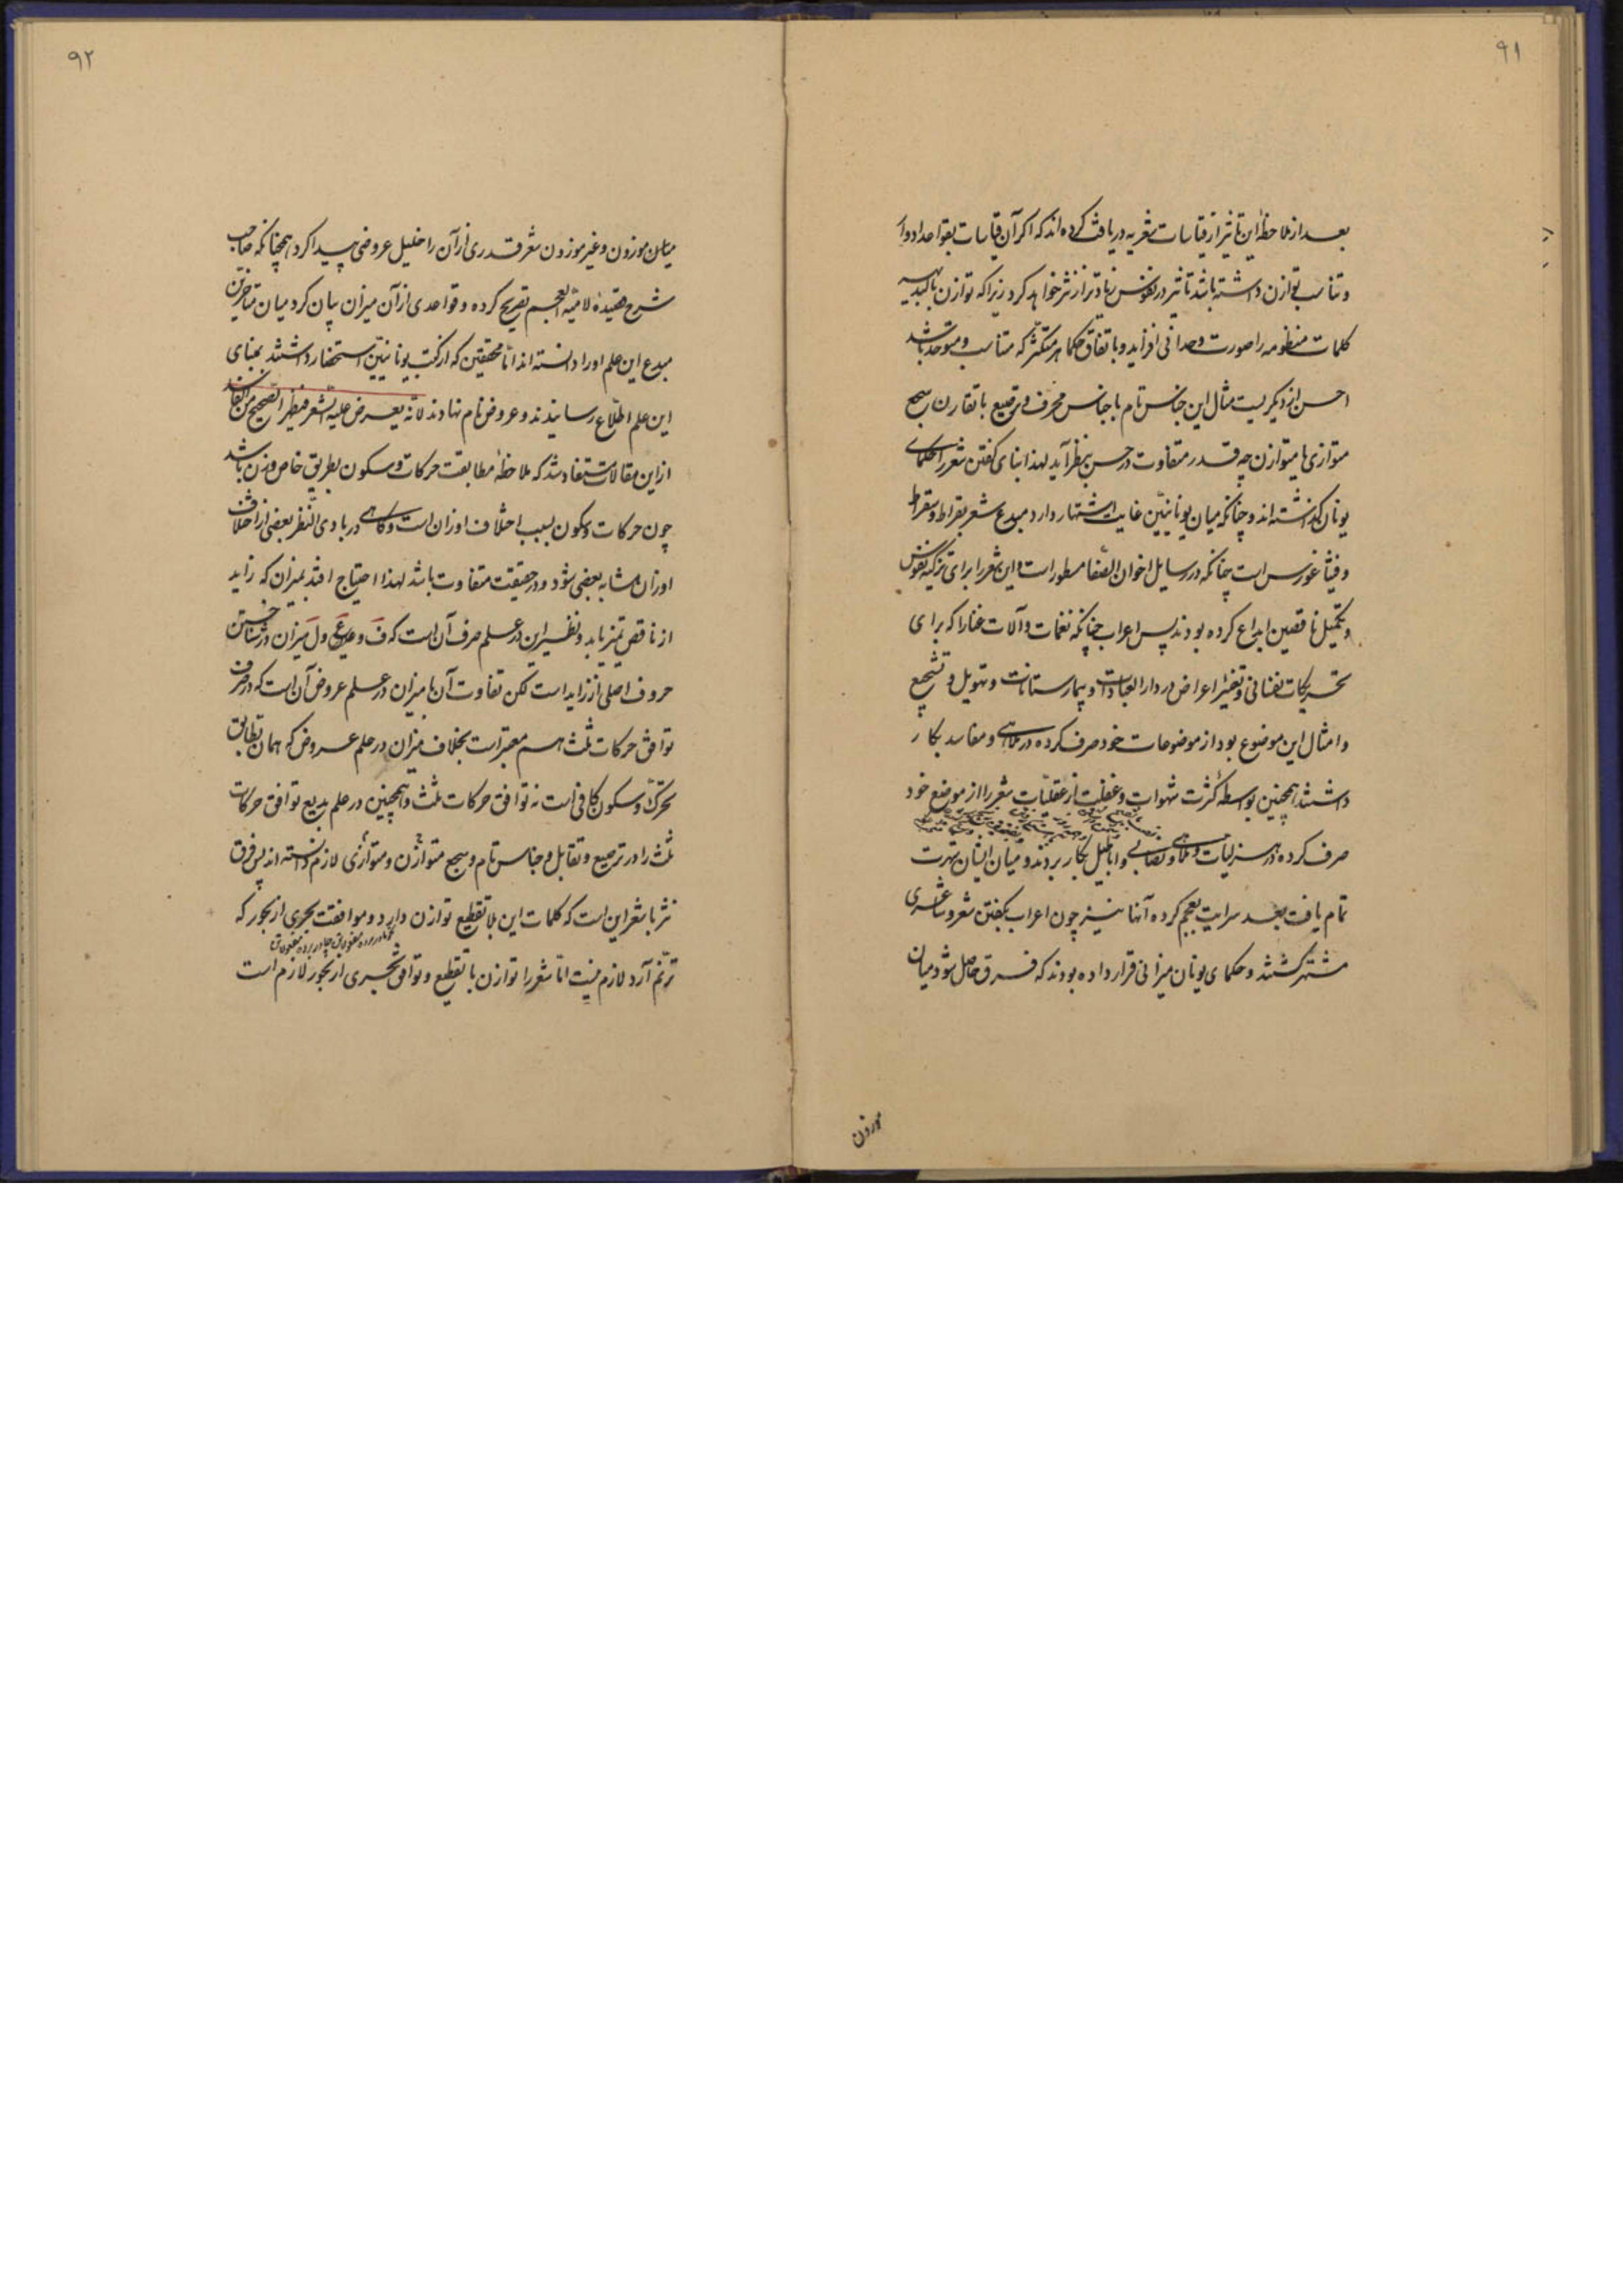 ۹۱
بعد از ملاحظهٔ این تاثیر از قیاسات شعریه دریافت کرده‌اند که اگر آن قیاسات بقواعد ادوار
و تناسب توازن داشته باشد تاثیر در نفوس زیادتر از نثر خواهد کرد زیرا که توازن بالبدیهه
کلمات منظومه را صورت وحدانی افزاید و باتفاق حکما هر متکثر که متناسب و متوحد باشد
احسن از دیگریست مثال این جناس تام با جناس محرف و ترصیع با تقارن و سجع
متوازی با متوازن چه قدر متفاوت در حسن بنظر آید لهذا بنای گفتن شعر را حکمای
یونان گذاشته‌اند و چنانکه میان یونانیین غایت اشتهار دارد مبدع شعر بقراط و سقراط
و فیثاغورس است چنانکه در رسایل اخوان الصفا مسطور است و این شعر را برای تزکیه نفوس
و تکمیل ناقصین ابداع کرده بودند پس اعراب چنانکه نغمات و آلات غنا را که برای
تحریکات نفسانی و تغییر اعراض در دار العبادات و بیمارستانات و تهویل و تشجیع
و امثال این موضوع بود از موضوعات خود صرف کرده در ملاهی و مفاسد بکار
داشتند همچنین بواسطه کثرت شهوات و غفلت از عقلیات شعر را از موضع خود
صرف کرده در هزلیات و ملاهی و تصابی و اباطیل بکار بردند و میان ایشان شهرت
تمام یافت بعد سرایت بعجم کرده آنها نیز چون اعراب بگفتن شعر و شاعری
مشتهر گشتند و حکمای یونان میزانی قرار داده بودند که فرق حاصل شود میان
موزون
۹۲
میان موزون و غیر موزون شعر قدری از آن را خلیل عروضی پیدا کرد همچنانکه صاحب
شرح قصیدهٔ لامیة العجم تصریح کرده و قواعدی از آن میزان بیان کرد میان متاخرین
مبدع این علم او را دانسته‌اند اما محققین که از کتب یونانیین استحضار داشتند بمبنای
این علم اطلاع رسانیدند و عروض نام نهادند لانه یعرض علیه الشعر فیظهر الصحیح من الفاسد
از این مقالات مستفاد شد که ملاحظهٔ مطابقت حرکات و سکون بطریق خاص وزن باشد
چون حرکات و سکون بسبب اختلاف اوزان است و گاهی در بادی النظر بعضی از اختلاف
اوزان مشابه بعضی شود و در حقیقت متفاوت باشد لهذا احتیاج افتد بمیزان که زاید
از ناقص تمیز یابد و نظیر این در علم صرف آن است که ف و ع و ل میزان در شناختن
حروف اصلی از زاید است لکن تفاوت آن با میزان در علم عروض آن است که در صرف
توافق حرکات ثلث هم معتبر است بخلاف میزان در علم عروض که همان تطابق
تحرک و سکون کافی است نه توافق حرکات ثلث و همچنین در علم بدیع توافق حرکات
ثلث را در ترصیع و تقابل و جناس تام و سجع متوازن و متوازی لازم دانسته‌اند پس فرق
نثر با شعر این است که کلمات این بلا تقطیع توازن دارد و موافقت بحری از بحور که
ترنم آرد لازم نیست اما شعر را توازن با تقطیع و توافق بحری از بحور لازم است